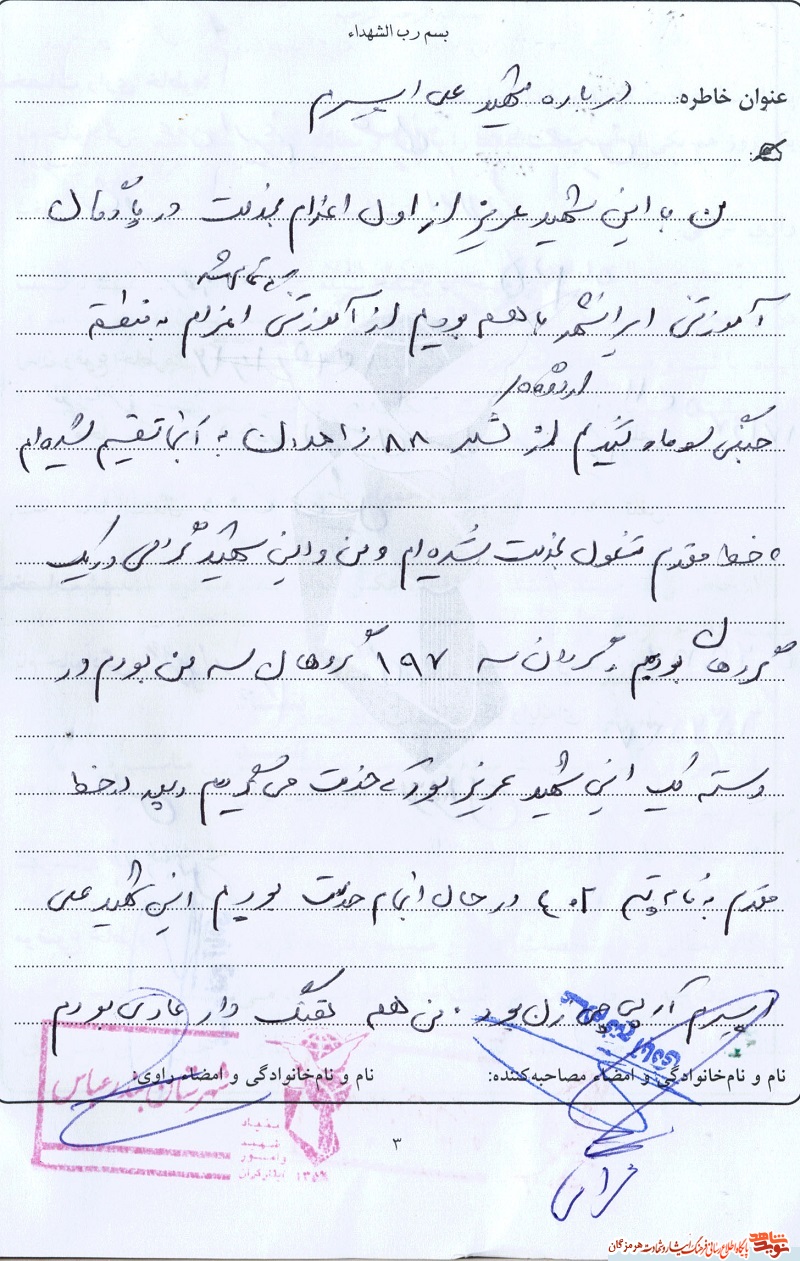 بسم رب الشهداء
عنوان خاطره: درباره شهید علی اسپرم
من با این شهید عزیز از اول اعزام بخدمت در پادگان
آموزشی ایرانشهر با هم بودیم از آموزشی اعزام به منطقه
جنگی سومار شدیم از لشکر ۸۸ زاهدان به آنجا تقسیم شده ایم
خط مقدم مشغول بخدمت شده ایم و من و این شهید گرامی در یک
گروهان بودیم گردان سه ۱۹۷ گروهان سه من بودم و در
دسته یک این شهید عزیز بود که خدمت می کردیم در خط
مقدم به نام تپه ۴۰۲ در حال انجام خدمت بودیم این شهید علی
اسپرم آر پی جی زن بود من هم تفنگ دار عادی بودم
نام و نام‌خانوادگی و امضاء مصاحبه‌کننده:
نام و نام‌خانوادگی و امضاء راوی:
شهرستان بندرعباس
بنیاد
شهید
و امور
ایثارگران
۱۳۵۸
۳
نوید شاهد
پایگاه اطلاع رسانی فرهنگ ایثار و شهادت هرمزگان